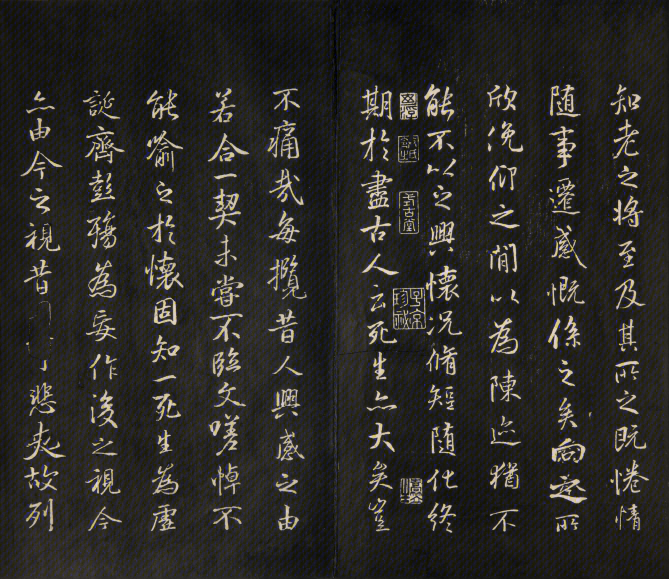 知老之將至及其所之既惓情
隨事遷感慨係之矣向之所
欣俛仰之閒以為陳迹猶不
能不以之興懷況脩短隨化終
式古堂
期於盡古人云死生亦大矣豈
不痛哉每攬昔人興感之由
若合一契未嘗不臨文嗟悼不
能喻之於懷固知一死生為虛
誕齊彭殤為妄作後之視今
亦由今之視昔悲夫故列